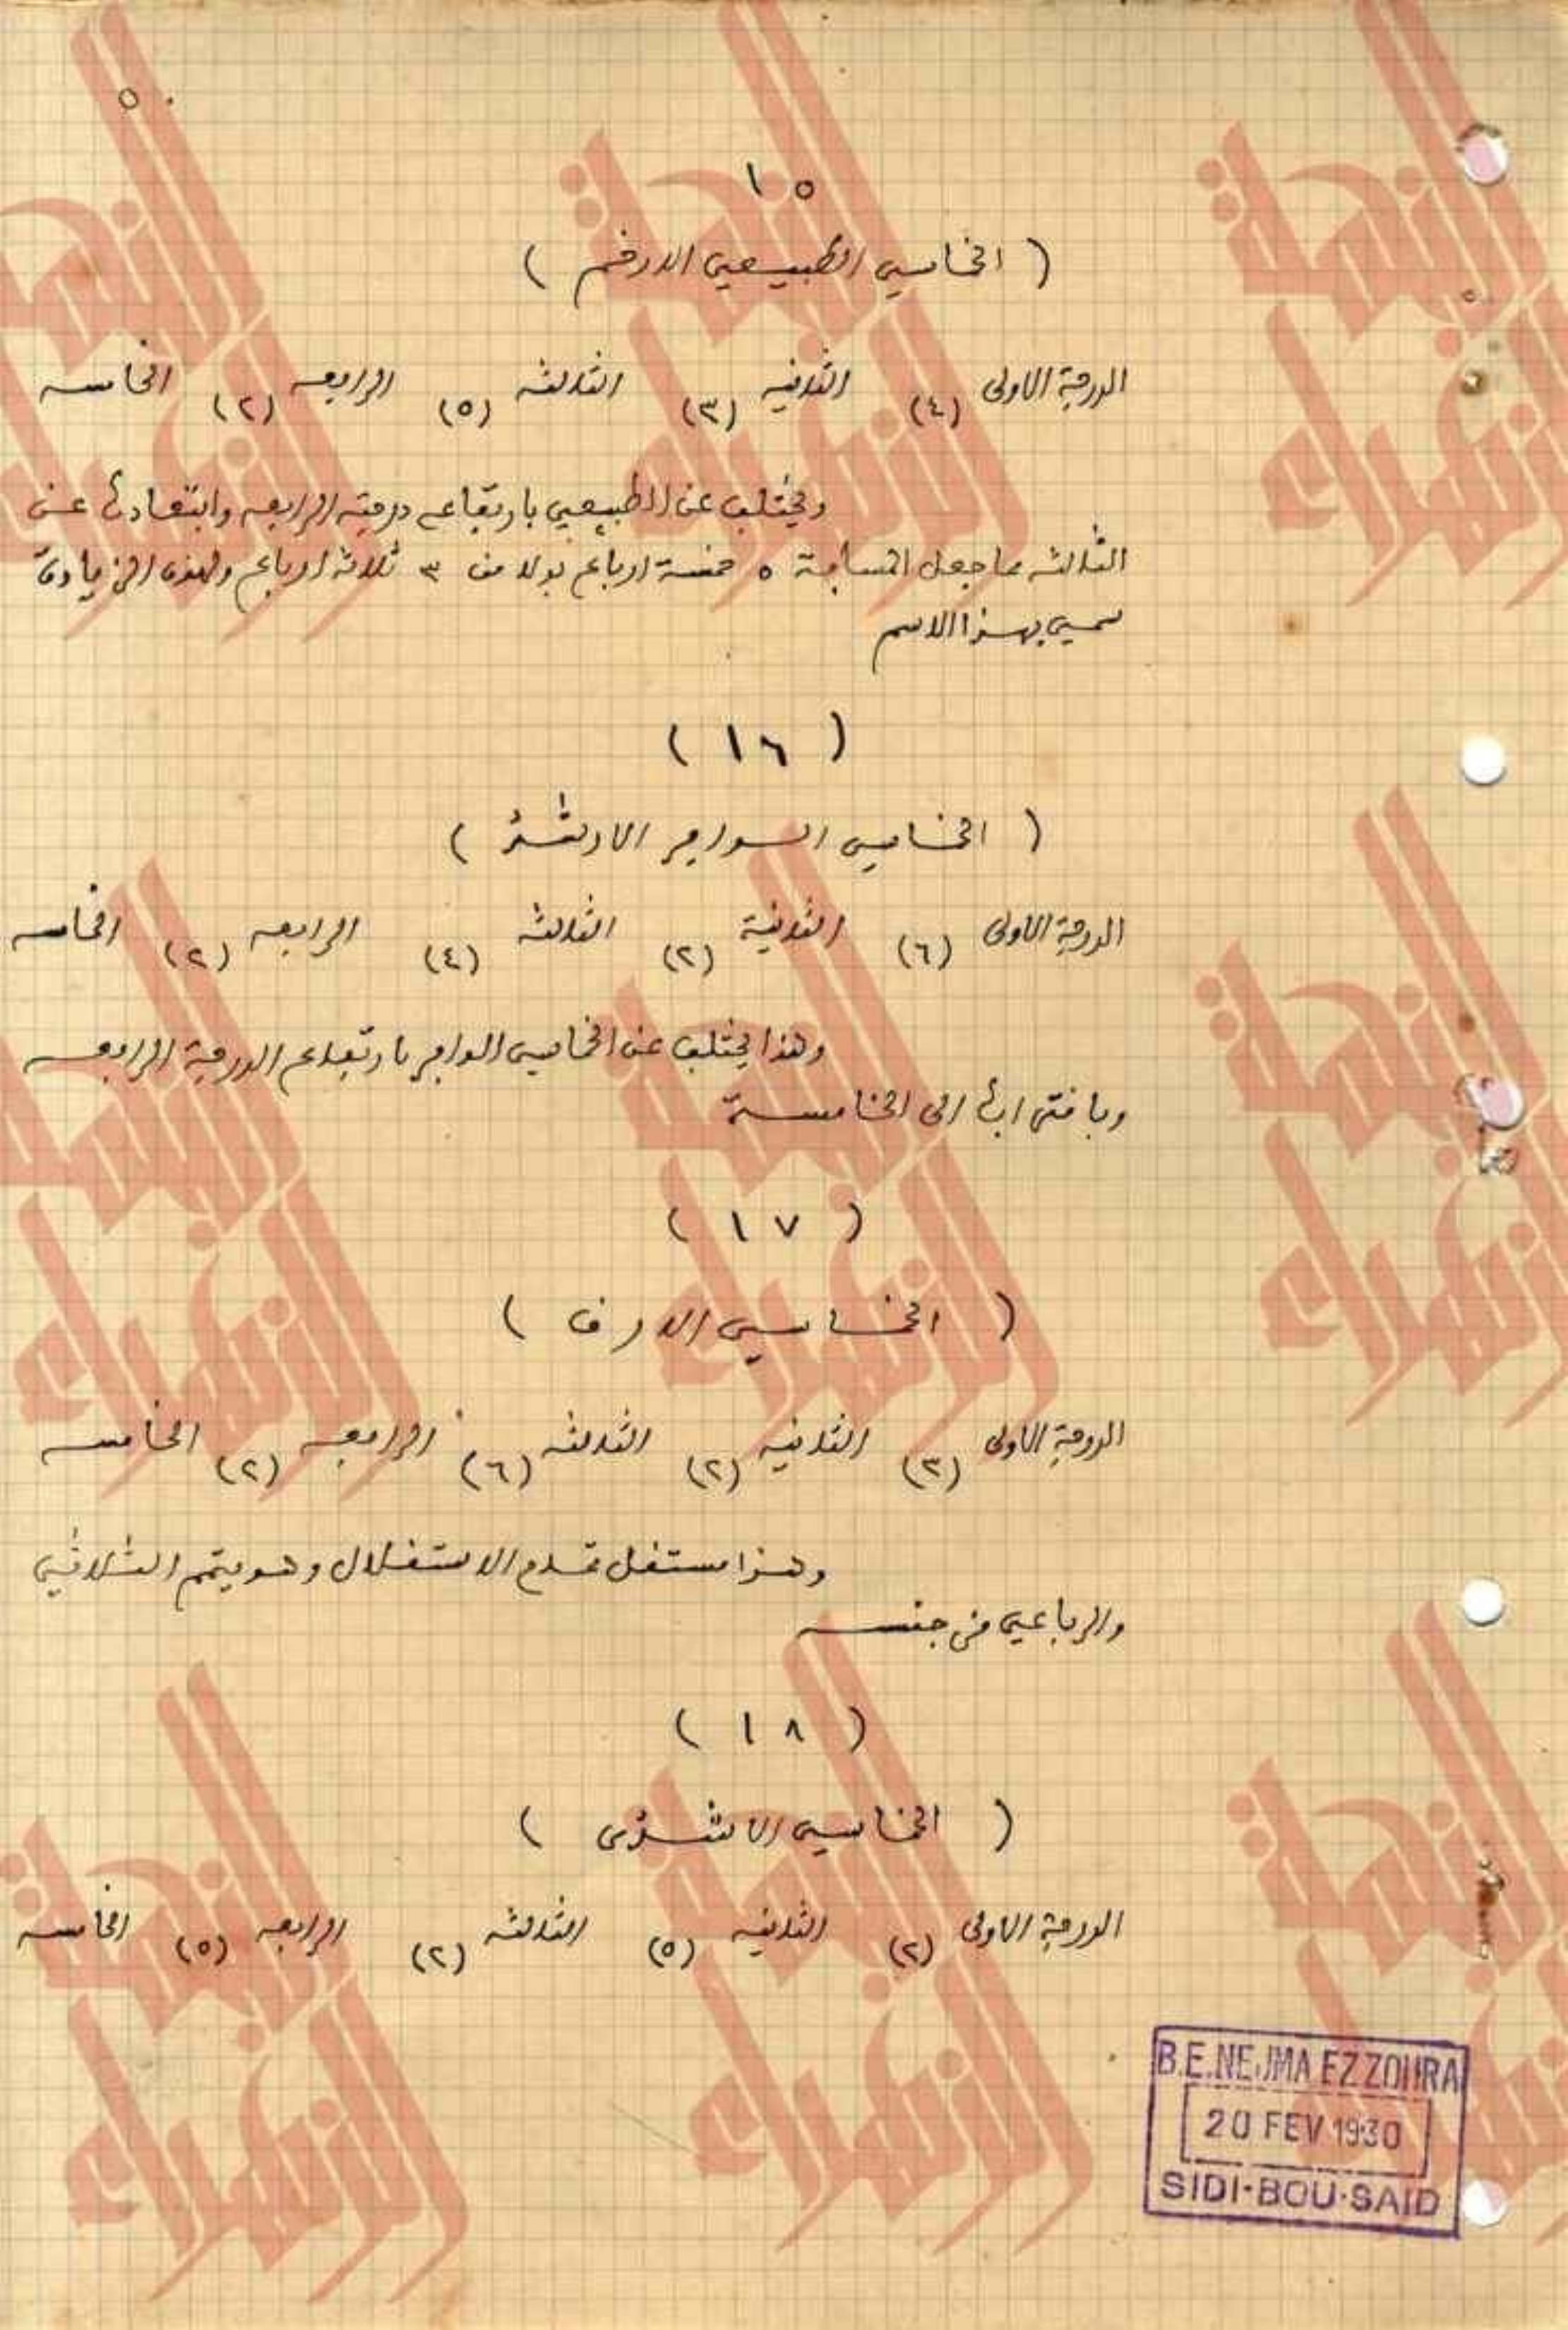 ٥
١٥
( الخماسي الطبيعي الارخم )
الدرجة الاولى (٤) الثانيه (٣) الثالثه (٥) الرابعه (٢) الخامسه
ويختلف عن الطبيعي بارتفاع درجته الرابعه وابتعادها عن
الثالثه مما جعل المسافة ٥ خمسة ارباع بدلا من ٣ ثلاثة ارباع ولهذه الزيادة
سمي بهذا الاسم
( ١٦ )
( الخماسي الوافر )
الدرجة الاولى (٦) الثانية (٢) الثالثه (٤) الرابعه (٢) الخامسه
وهذا يختلف عن الخماسي الوافر بارتفاع الدرجة الرابعه
وباقترابها الى الخامسة
( ١٧ )
( الخماسي الارق )
الدرجة الاولى (٣) الثانيه (٢) الثالثه (٦) الرابعه (٢) الخامسه
وهذا مستقل تمام الاستقلال وهو يتمم الثلاثي
والرباعي من جنسه
( ١٨ )
( الخماسي )
الدرجة الاولى (٢) الثانيه (٥) الثالثه (٢) الرابعه (٥) الخامسه
B.E.NEJMA EZZOHRA
20 FEV 1930
SIDI-BOU-SAID
النجمة
الزهراء